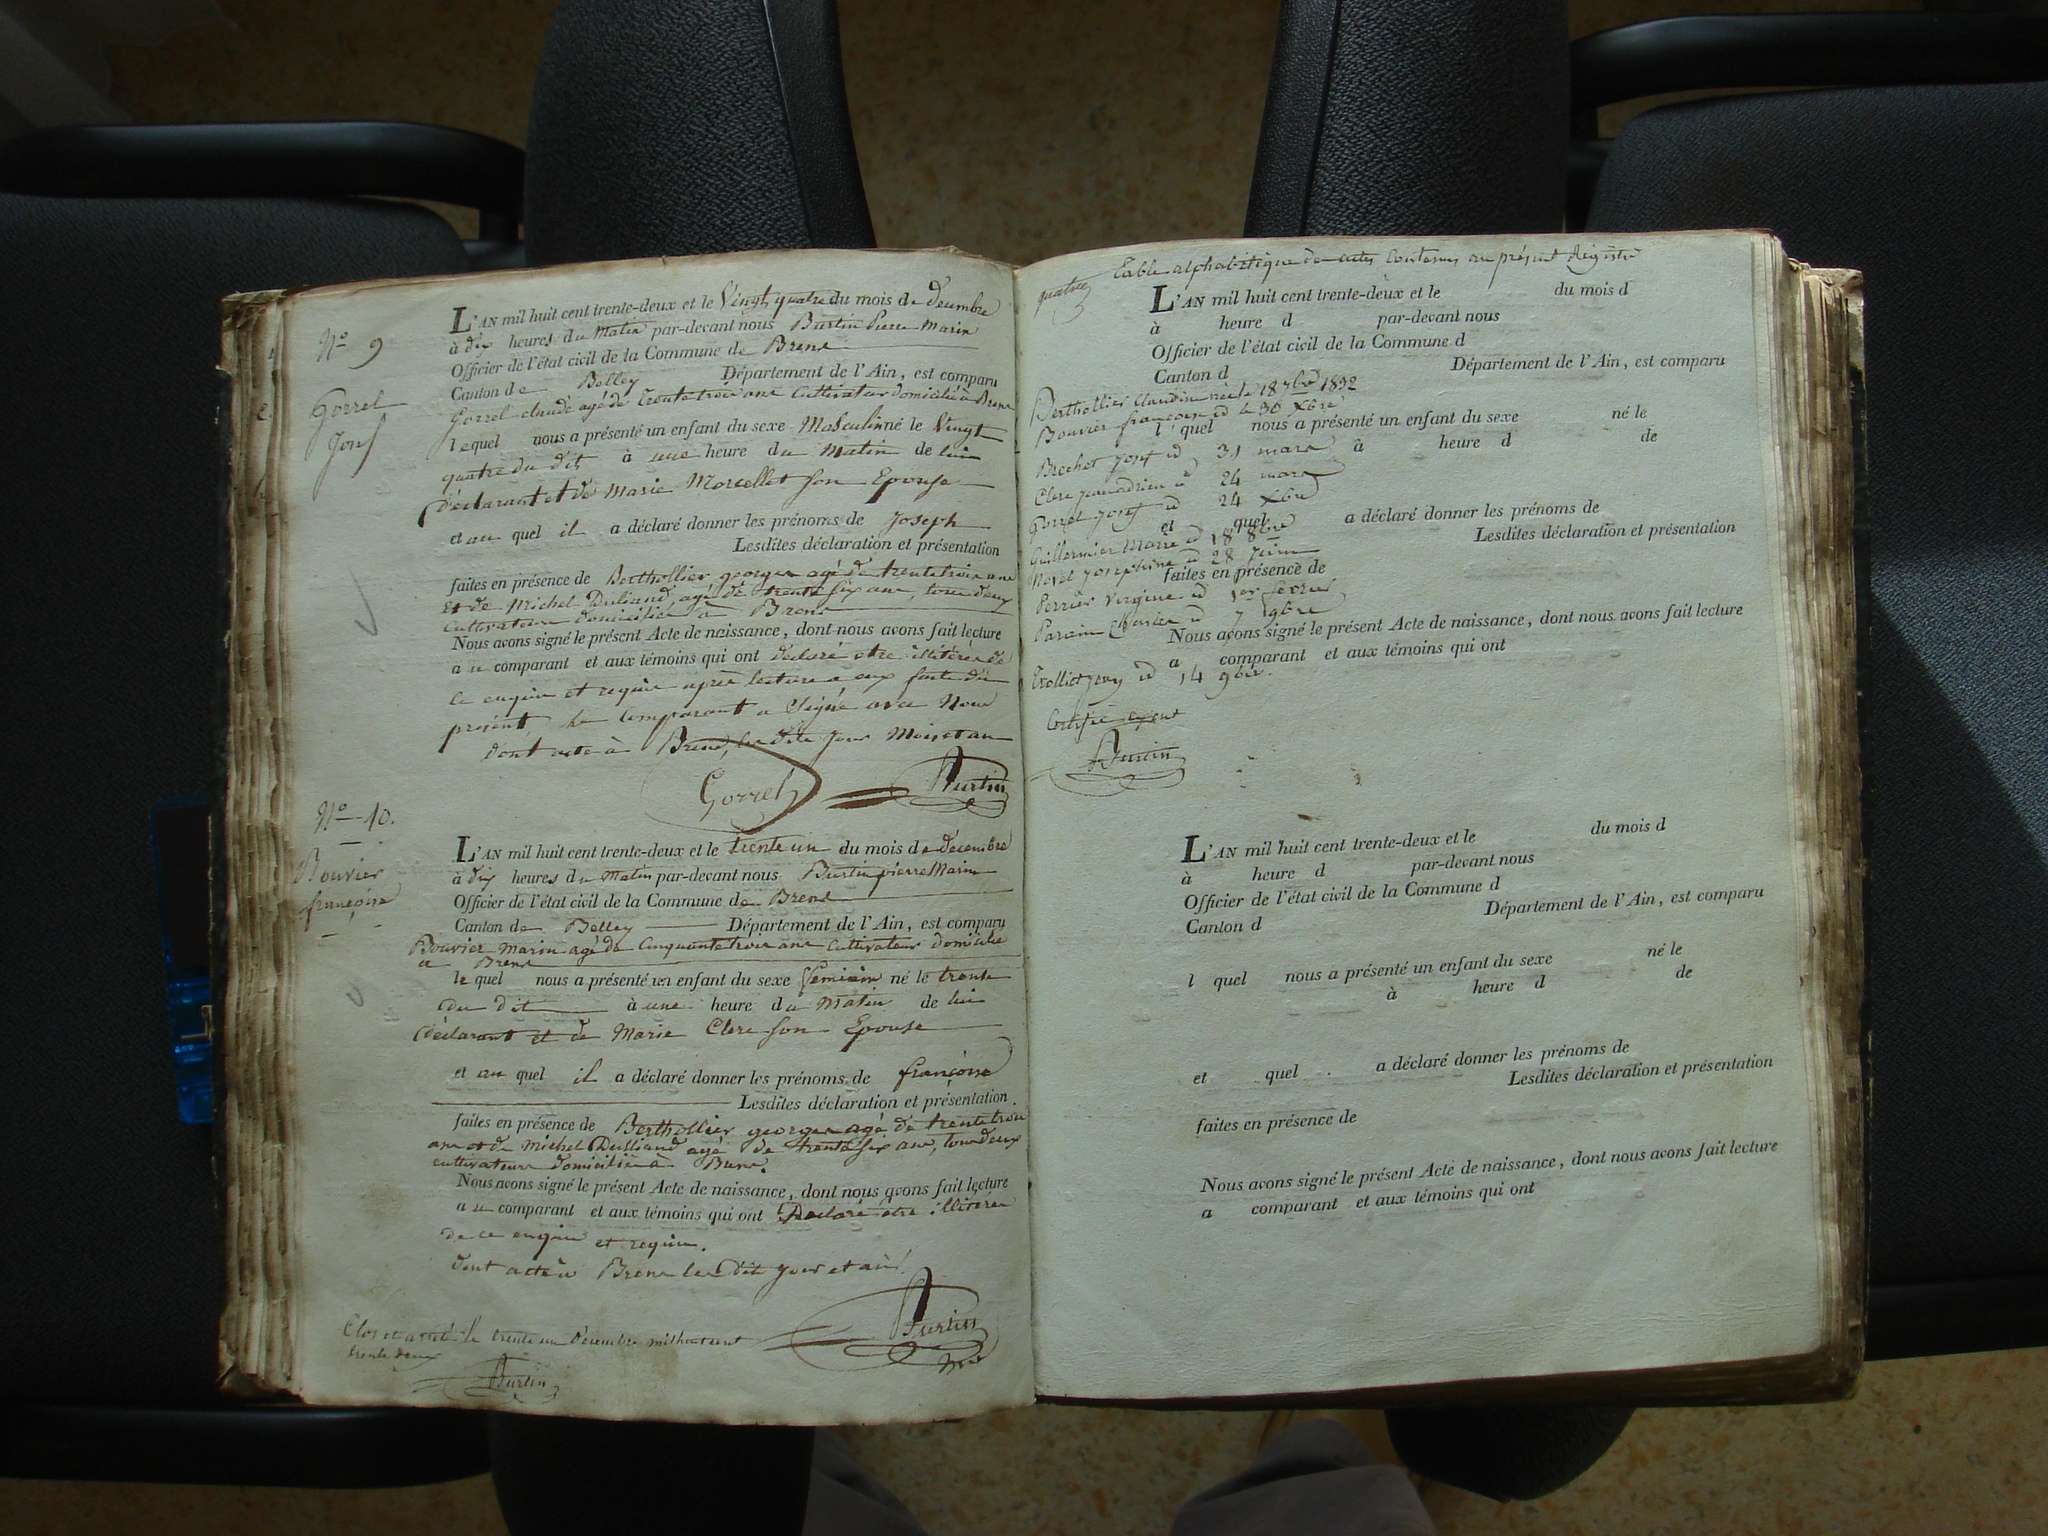 N° 9
Gorrel
Josh
L'AN mil huit cent trente-deux et le Vingt quatre du mois de decembre
à dix heures du Matin par-devant nous Burtin Pierre Marin
Officier de l'état civil de la Commune de Brens
Canton de Belley Département de l'Ain, est comparu
Gorrel claude agé de trente trois ans Cultivateur domicilié à Brens
lequel nous a présenté un enfant du sexe Masculin né le Vingt
quatre du dit à une heure du Matin de lui
déclarant et de Marie Morcellet son Epouse
et au quel il a déclaré donner les prénoms de Joseph
Lesdites déclaration et présentation
faites en présence de Berthollier georges agé de trente trois ans
Et de Michel Dulliand, agé de trente six ans, tous deux
cultivateurs domiciliés à Brens
Nous avons signé le présent Acte de naissance, dont nous avons fait lecture
au comparant et aux témoins qui ont declaré etre illitérés de
ce enquis et requis après lecture a eux faite du
présent, Le Comparant a Signé avec Nous
dont acte à Brens, les dits Jour Mois et an
Gorrel Burtin
N° 10.
Bouvier
françoise
L'AN mil huit cent trente-deux et le trente un du mois de decembre
à dix heures du Matin par-devant nous Burtin pierre Marin
Officier de l'état civil de la Commune de Brens
Canton de Belley Département de l'Ain, est comparu
Bouvier Marin agé de Cinquante trois ans Cultivateur domicilié
a Brens
le quel nous a présenté un enfant du sexe feminin né le trente
du dit à une heure du Matin de lui
déclarant et de Marie Clerc son Epouse
et au quel il a déclaré donner les prénoms de françoise
Lesdites déclaration et présentation.
faites en présence de Berthollier georges agé de trente trois
ans et de michel Dulliand agé de trente six ans, tous deux
cultivateurs domiciliés à Brens.
Nous avons signé le présent Acte de naissance, dont nous avons fait lecture
au comparant et aux témoins qui ont Declaré etre illitérés
de ce enquis et requis.
dont acte à Brens les dit jour et an.
Burtin
Clos et arrêté le trente un Décembre mil huit cent
trente deux
Burtin
quatre
Table alphabétique des actes Contenus au présent Régistre
L'AN mil huit cent trente-deux et le du mois d
à heure d par-devant nous
Officier de l'état civil de la Commune d
Canton d Département de l'Ain, est comparu
Berthollier Claudine née le 18 7bre 1832
Bouvier françoise id le 30 Xbre
l quel nous a présenté un enfant du sexe né le
à heure d de
Brochet Josh id 31 mars
Clerc id 24 mars
Gorrel Josh id 24 Xbre
et quel a déclaré donner les prénoms de
Lesdites déclaration et présentation
Guillermier Marie id 18 8bre
Novel Josephine id 28 Juin
faites en présence de
Perrier Virginie id 1er fevrier
Parain Charles id 7 9bre
Nous avons signé le présent Acte de naissance, dont nous avons fait lecture
a comparant et aux témoins qui ont
Trolliet id 14 9bre.
Certifié
Burtin
L'AN mil huit cent trente-deux et le du mois d
à heure d par-devant nous
Officier de l'état civil de la Commune d
Canton d Département de l'Ain, est comparu
l quel nous a présenté un enfant du sexe né le
à heure d de
et quel a déclaré donner les prénoms de
Lesdites déclaration et présentation
faites en présence de
Nous avons signé le présent Acte de naissance, dont nous avons fait lecture
a comparant et aux témoins qui ont